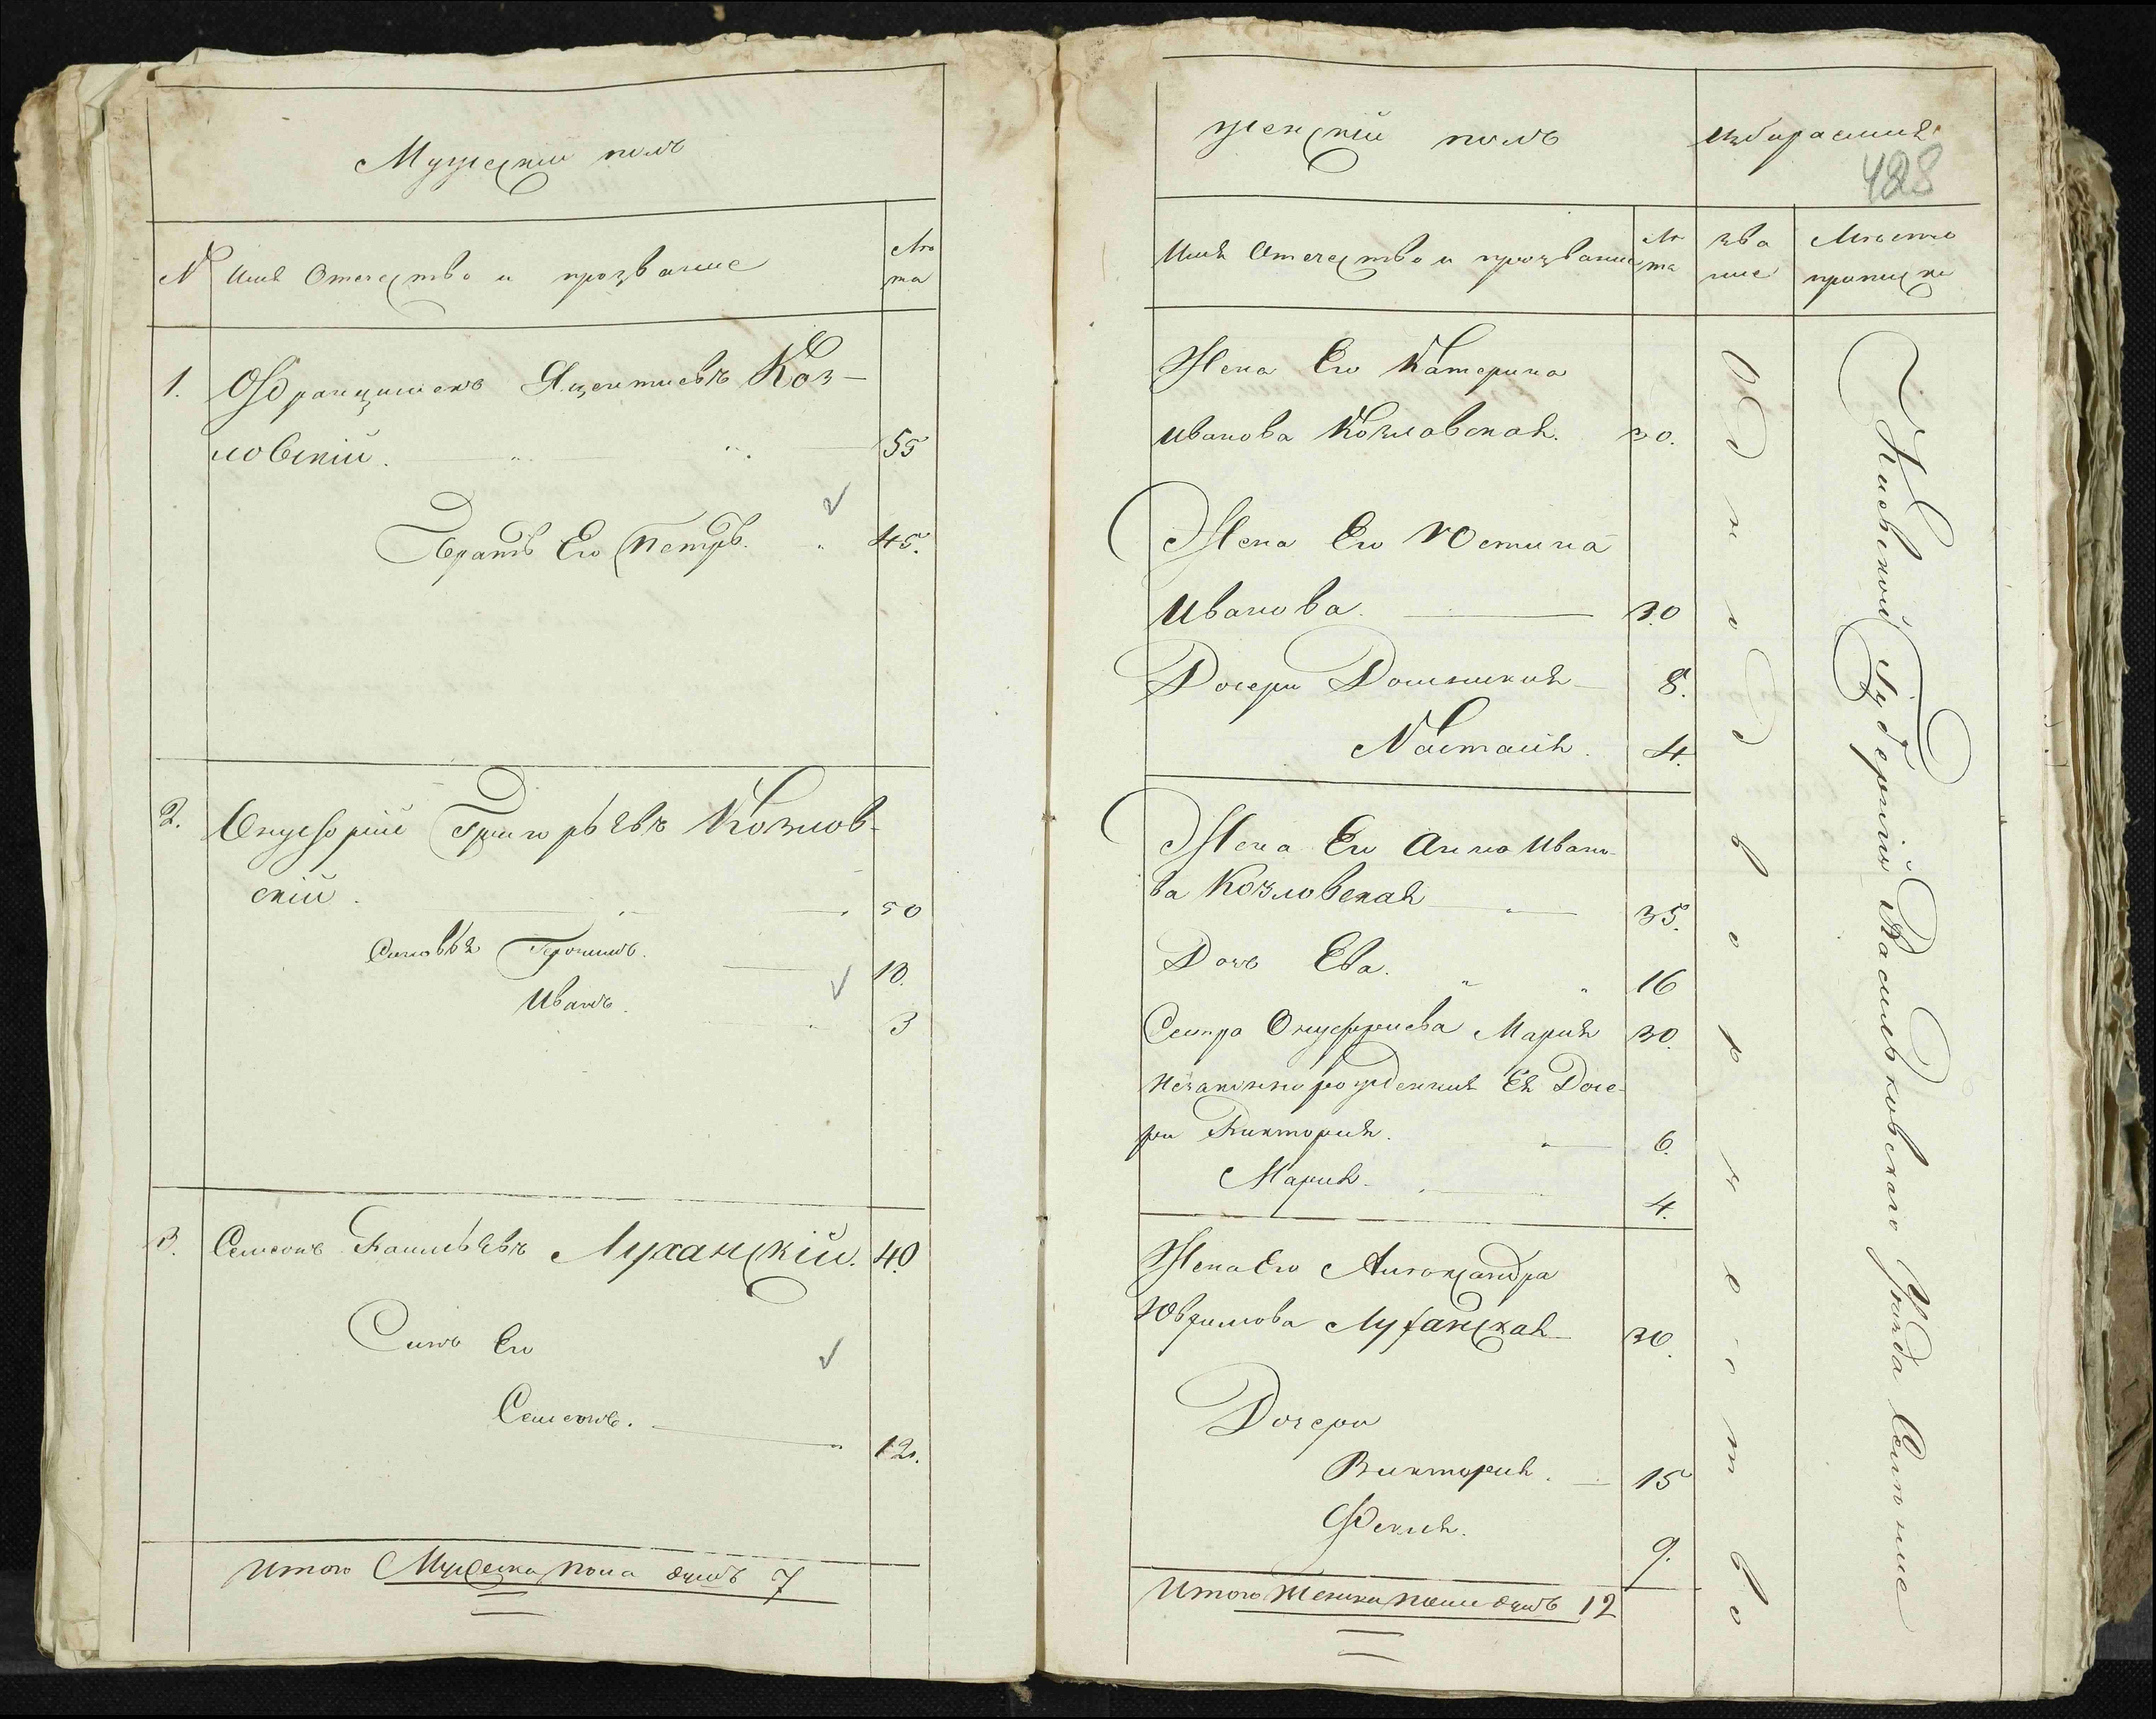 Мужескій полъ
№ Имя Отечество и прозваніе
Лѣ
та
1. Францишекъ Яцентіевъ Коз-
ловскій. 55
Братъ Его Петръ. 45.
2. Онуфорій Григорьевъ Козлов-
скій. 50
Сыновья Геронимъ. 10.
Иванъ. 3
3. Семіонъ Лухансκій. 40
Сынъ Его
Семіонъ. 12.
Итого Мужеска пола душъ 7
женскій полъ
избираемыя
428
Имя Отечество и прозваніе
Лѣ
та
зва
ніе
Мѣсто
приписки
Жена Его Катерина
Иванова Козловская. 30.
Жена Его Юстина
Иванова. 30
Дочери Доминикія 8.
Настасія. 4.
Жена Его Анна Ивано-
ва Козловская 35.
Дочь Ева. 16
Сестра Онуфріева Марія 30.
Незаконнорожденныя Ея Доче-
ри Викторія. 6.
Марія. 4.
Жена Его Александра
Луханская 30.
Дочери
Викторія. 15
Фекля. 9.
Итого Женска пола душъ 12
Однодворческое
Кіевской Губерніи Васильковскаго Уѣзда